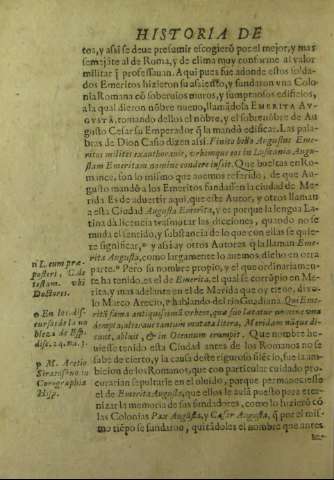 HISTORIA DE
tos, y assi se deue presumir escogierõ por el mejor, y mas
semejãte al de Roma, y de clima muy conforme al valor
militar q̃ professauan. Aqui pues fue adonde estos solda-
dos Emeritos hizieron su assiesto, y fundaron vna Colo-
nia Romana cõ soberuios muros, y sumptuosos edificios,
a la qual dieron nõbre nueuo, llamãdola EMERITA AV-
GVSTA, tomando dellos el nõbre, y el sobrenõbre de Au-
gusto Cesar su Emperador q̃ la mandò edificar. Las pala-
bras de Dion Casio dizen assi. Finito bello Augustus Eme-
ritos milites exauthorauit, vrbemque eos in Lusitania Augu-
stam Emeritam nomine condere iussit. Que bueltas en Ro-
mance, son lo mismo que auemos referido, de que Au-
gusto mandò a los Emeritos fundassen la ciudad de Me-
rida. Es de aduertir aqui, que este Autor, y otros llaman
a esta Ciudad Augusta Emerita, y es porque la lengua La-
tina dà licencia trasmutar las dicciones, quando no se
muda el sentido, y substancia de lo que con ellas se quie-
re significar, y assi ay otros Autores q̃ la llaman Eme-
rita Augusta, como largamente lo auemos dicho en otra
parte. Pero su nombre propio, y el que ordinariamen-
te ha tenido, es el de Emerita, el qual se corrõpio en Me-
rita, y mas adelante en el de Merida que oy tiene, dixo-
lo Marco Arecio, hablando del rio Guadiana. Qui Emeri-
tã fama antiquissimã vrbem, que sue latatur nomine una
dempta, altera autem mutata litera, Meridam nũcu-
cant, abluit, & in Oceanum irrumpit. Que nombre hu-
uiesse tenido esta Ciudad antes de los Romanos no se
sabe de cierto, y la causa deste riguroso silẽcio, fue la am-
bicion de los Romanos, que con particular cuidado pro-
curarian sepultarle en el oluido, porque permaneciesse
el de Emerita Augusta, que ellos le auiã puesto para eter-
nizar la memoria de sus fundadores, como lo hizierõ cõ
las Colonias Pax Augusta, y Cæsar Augusta, q̃ por el mis-
mo tiẽpo se fundarõ, quitãdoles el nombre que antes
L. cum præ-
posteri, C. de
testam. vbi
Doctores.
En los dis-
cursos de la no
bleza de Es-
M. Arecio
Siracusano in
Corographia
Hisp.